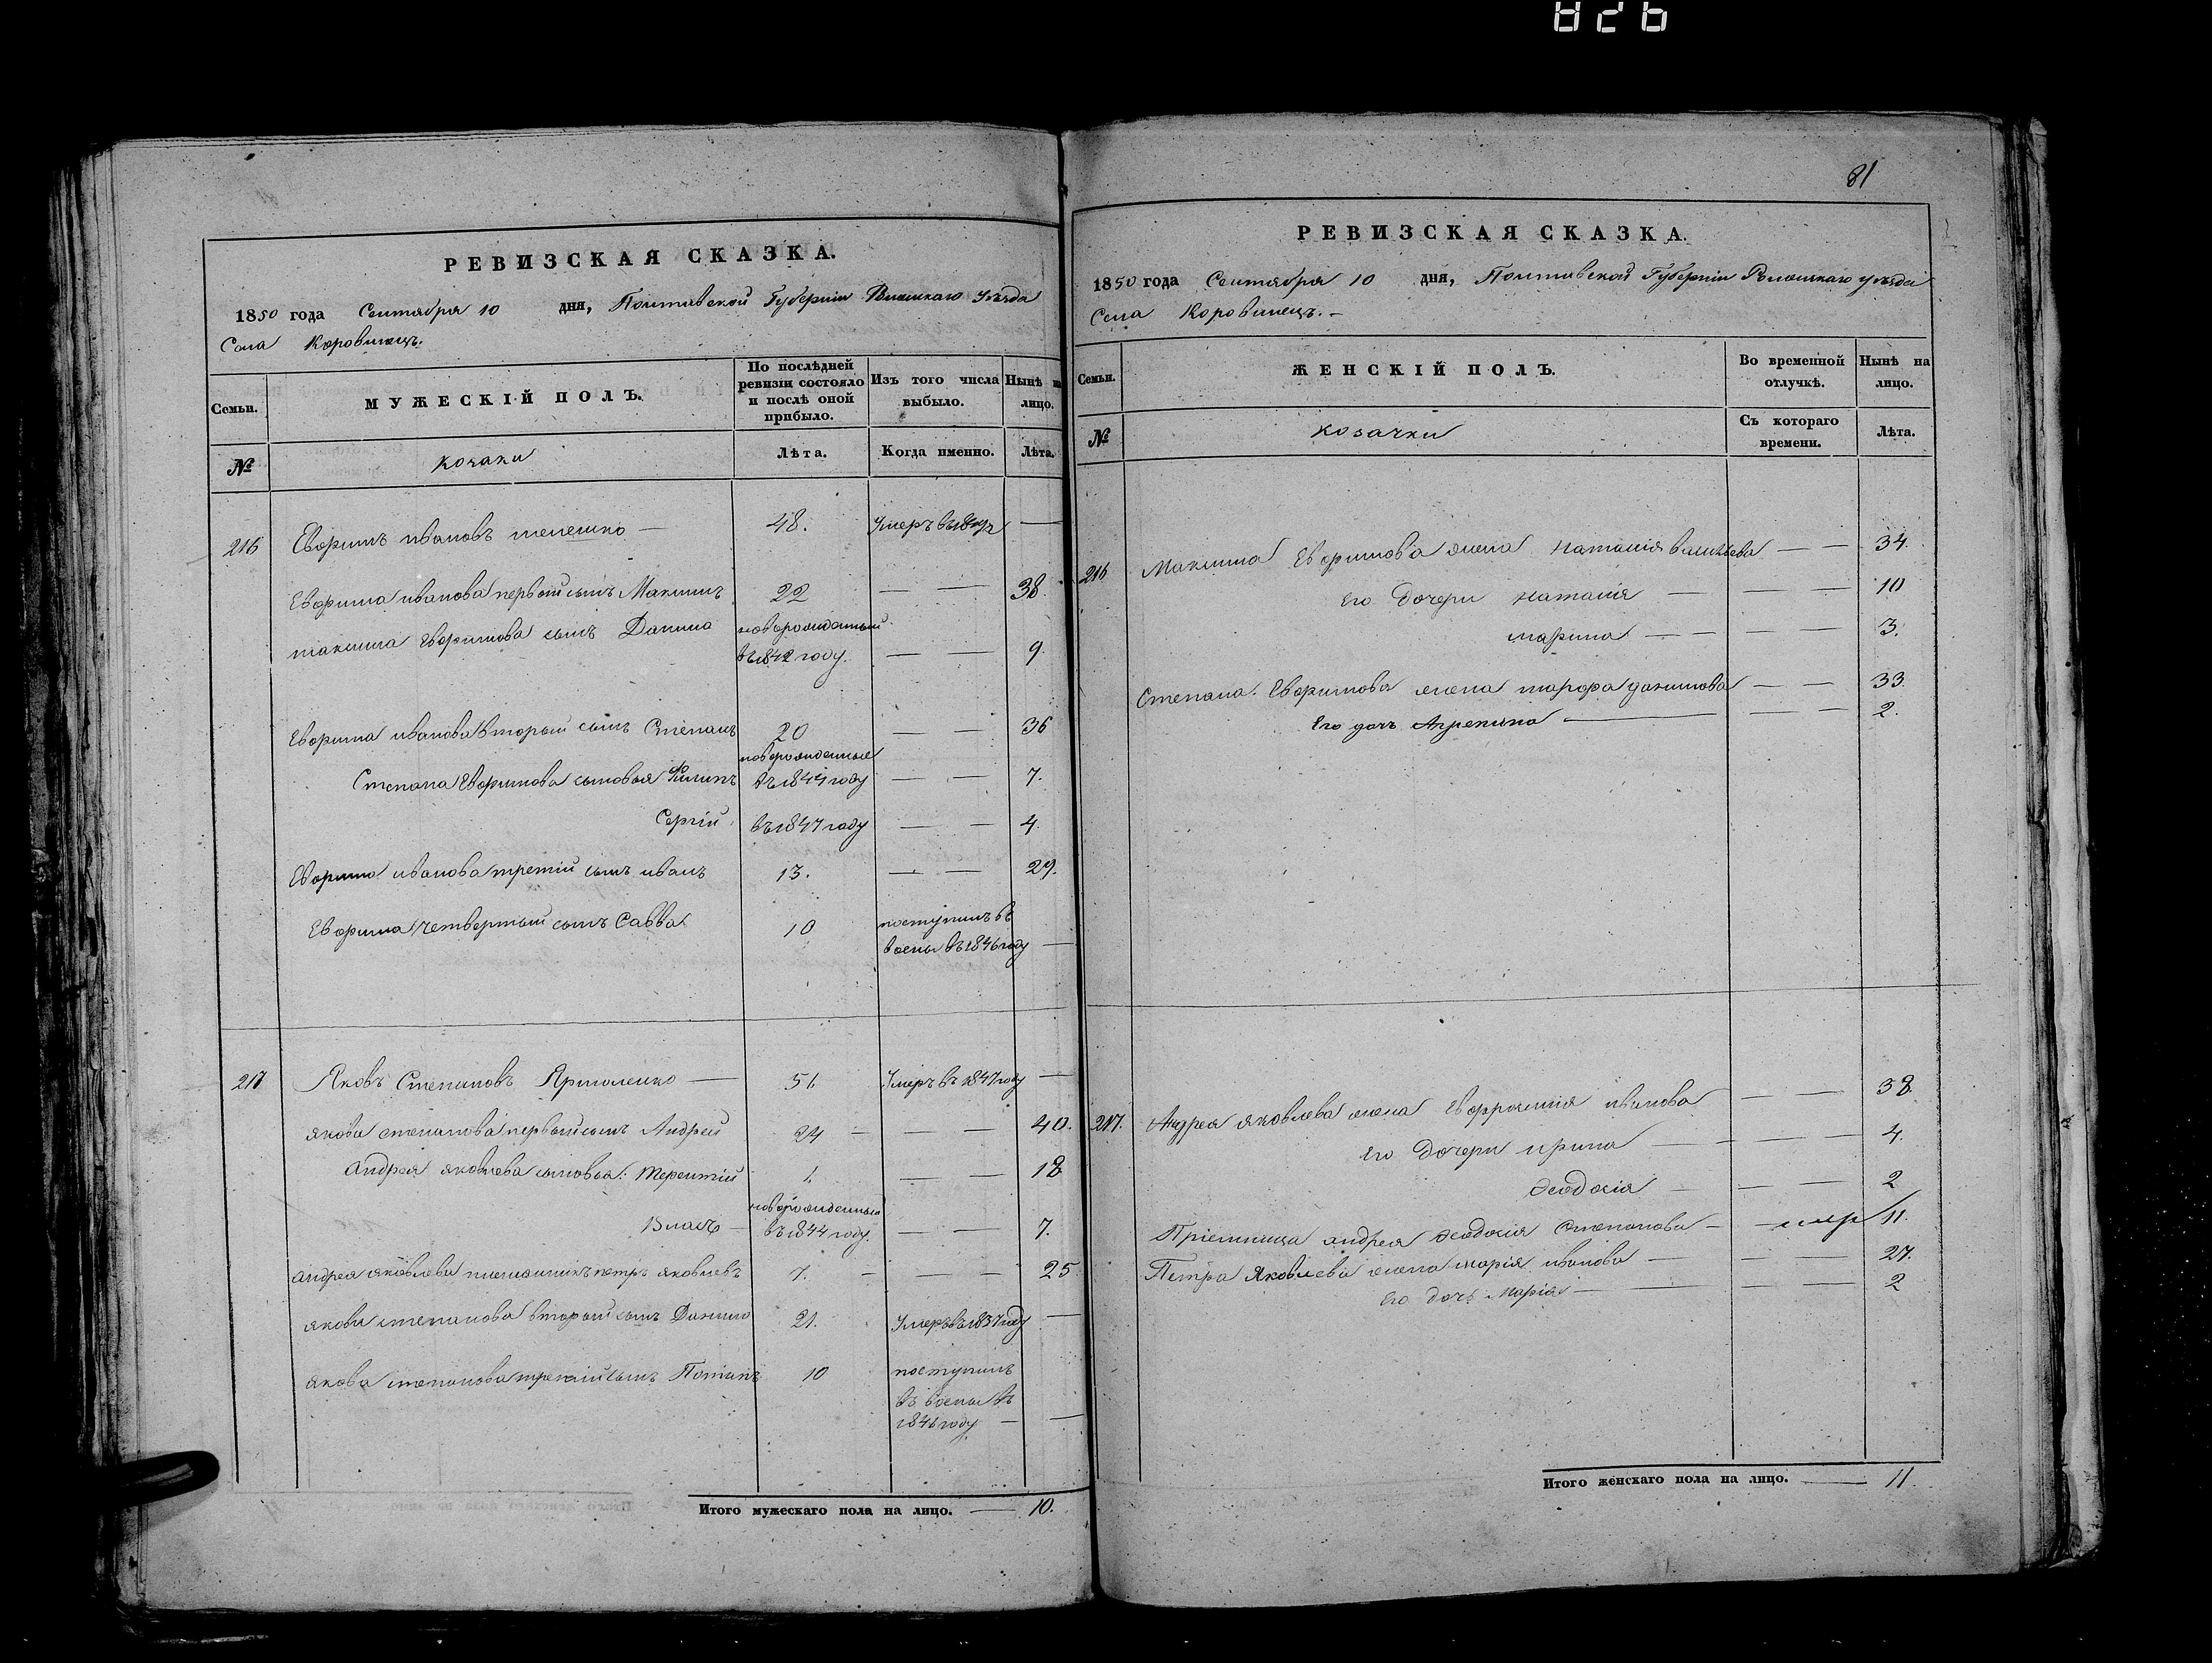 826
81
РЕВИЗСКАЯ СКАЗКА.
1850 года Сентября 10 дня, Полтавской Губернии Роменскаго Уѣзда
Села Коровинецъ.
Семьи.
МУЖЕСКІЙ ПОЛЪ.
По послѣдней ревизіи состояло и послѣ оной прибыло.
Изъ того числа выбыло.
Нынѣ на лицо.
№
козаки
Лѣта.
Когда именно.
Лѣта.
216 Евфимъ ивановъ телешко — 48. Умеръ въ —
Евфима иванова первый сынъ Максимъ 22 — — 38.
максима Евфимова сынъ Данило новорожденный
въ 1842 году. — — 9.
Евфима иванова второй сынъ Степанъ 20 — — 36
новорожденные
Степана Евфимова сыновья Филипъ въ 1844 году — — 7.
Сергій въ 1847 году — — 4.
Евфима иванова третій сынъ иванъ 13. — — 29.
Евфима четвертый сынъ Савва 10 поступилъ въ
военн въ 1846 году —
217 Яковъ Степановъ Ярмоленко — 51. Умеръ въ 1847 году —
якова степанова первый сынъ Андрей 24 — — — 40.
андрея яковлева сыновья: Терентій 1. — — 18
новорожденный
Власъ — въ 1844 году. — — 7.
андрея яковлева племянникъ петръ яковлевъ 7. — — — 25
якова степанова второй сынъ Данило 21. Умеръ въ 1837 году —
якова степанова третій сынъ Потапъ 10 поступилъ
въ военн въ
1846 году — —
Итого мужескаго пола на лицо. — 10.
РЕВИЗСКАЯ СКАЗКА.
1850 года Сентября 10 дня, Полтавской Губерніи Роменскаго уѣзда
Села Коровинецъ. —
Семьи.
ЖЕНСКІЙ ПОЛЪ.
Во временной отлучкѣ.
Нынѣ на лицо.
№
козачки
Съ котораго времени.
Лѣта.
216 Максима Евфимова жена Наталія васильева — — 34.
Его Дочери наталія — — — 10
марина — — — — 3.
Степана Евфимова жена марфа данилова — — 33.
Его дочь Агрепина — — — 2.
217. Андрея яковлева жена Евфросинія иванова — — 38.
Его Дочери ирина — — — 4.
Феодосія — — — 2
Пріемница андрея феодосія Степанова — — 11.
Петра Яковлева жена марія иванова — — — 27.
Его дочь Марія — — — 2
Итого женскаго пола на лицо. — 11.